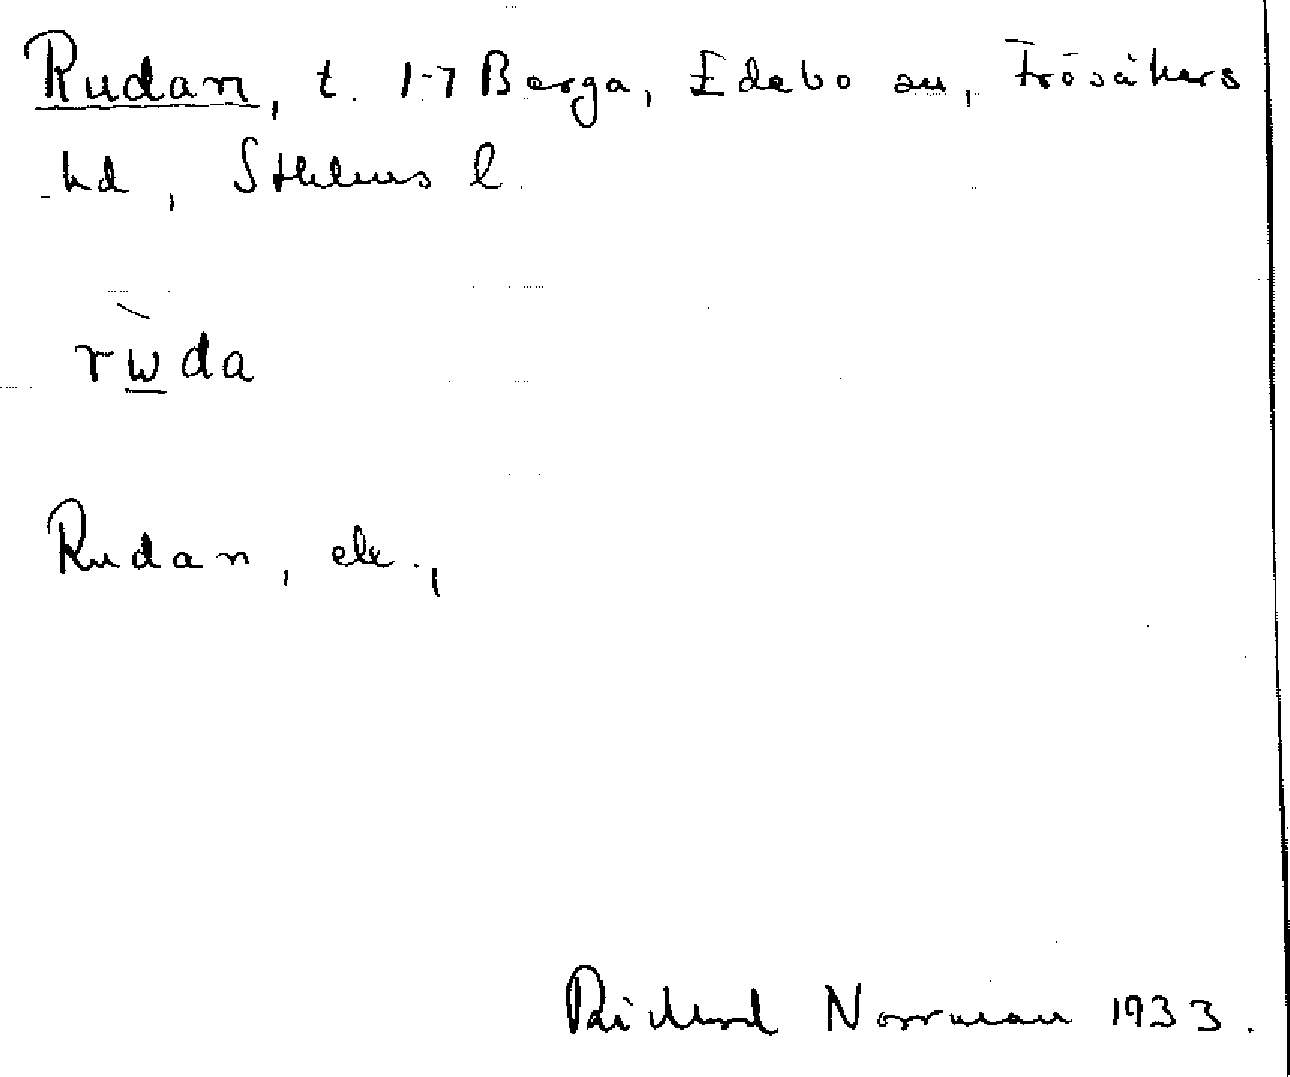 Rudan, t. 1-7 Berga, Edebo sn, Frösåkers
hd, Sthlms l.
rẁ̲da
Rudan, ek.,
Rickard Norrman 1933.